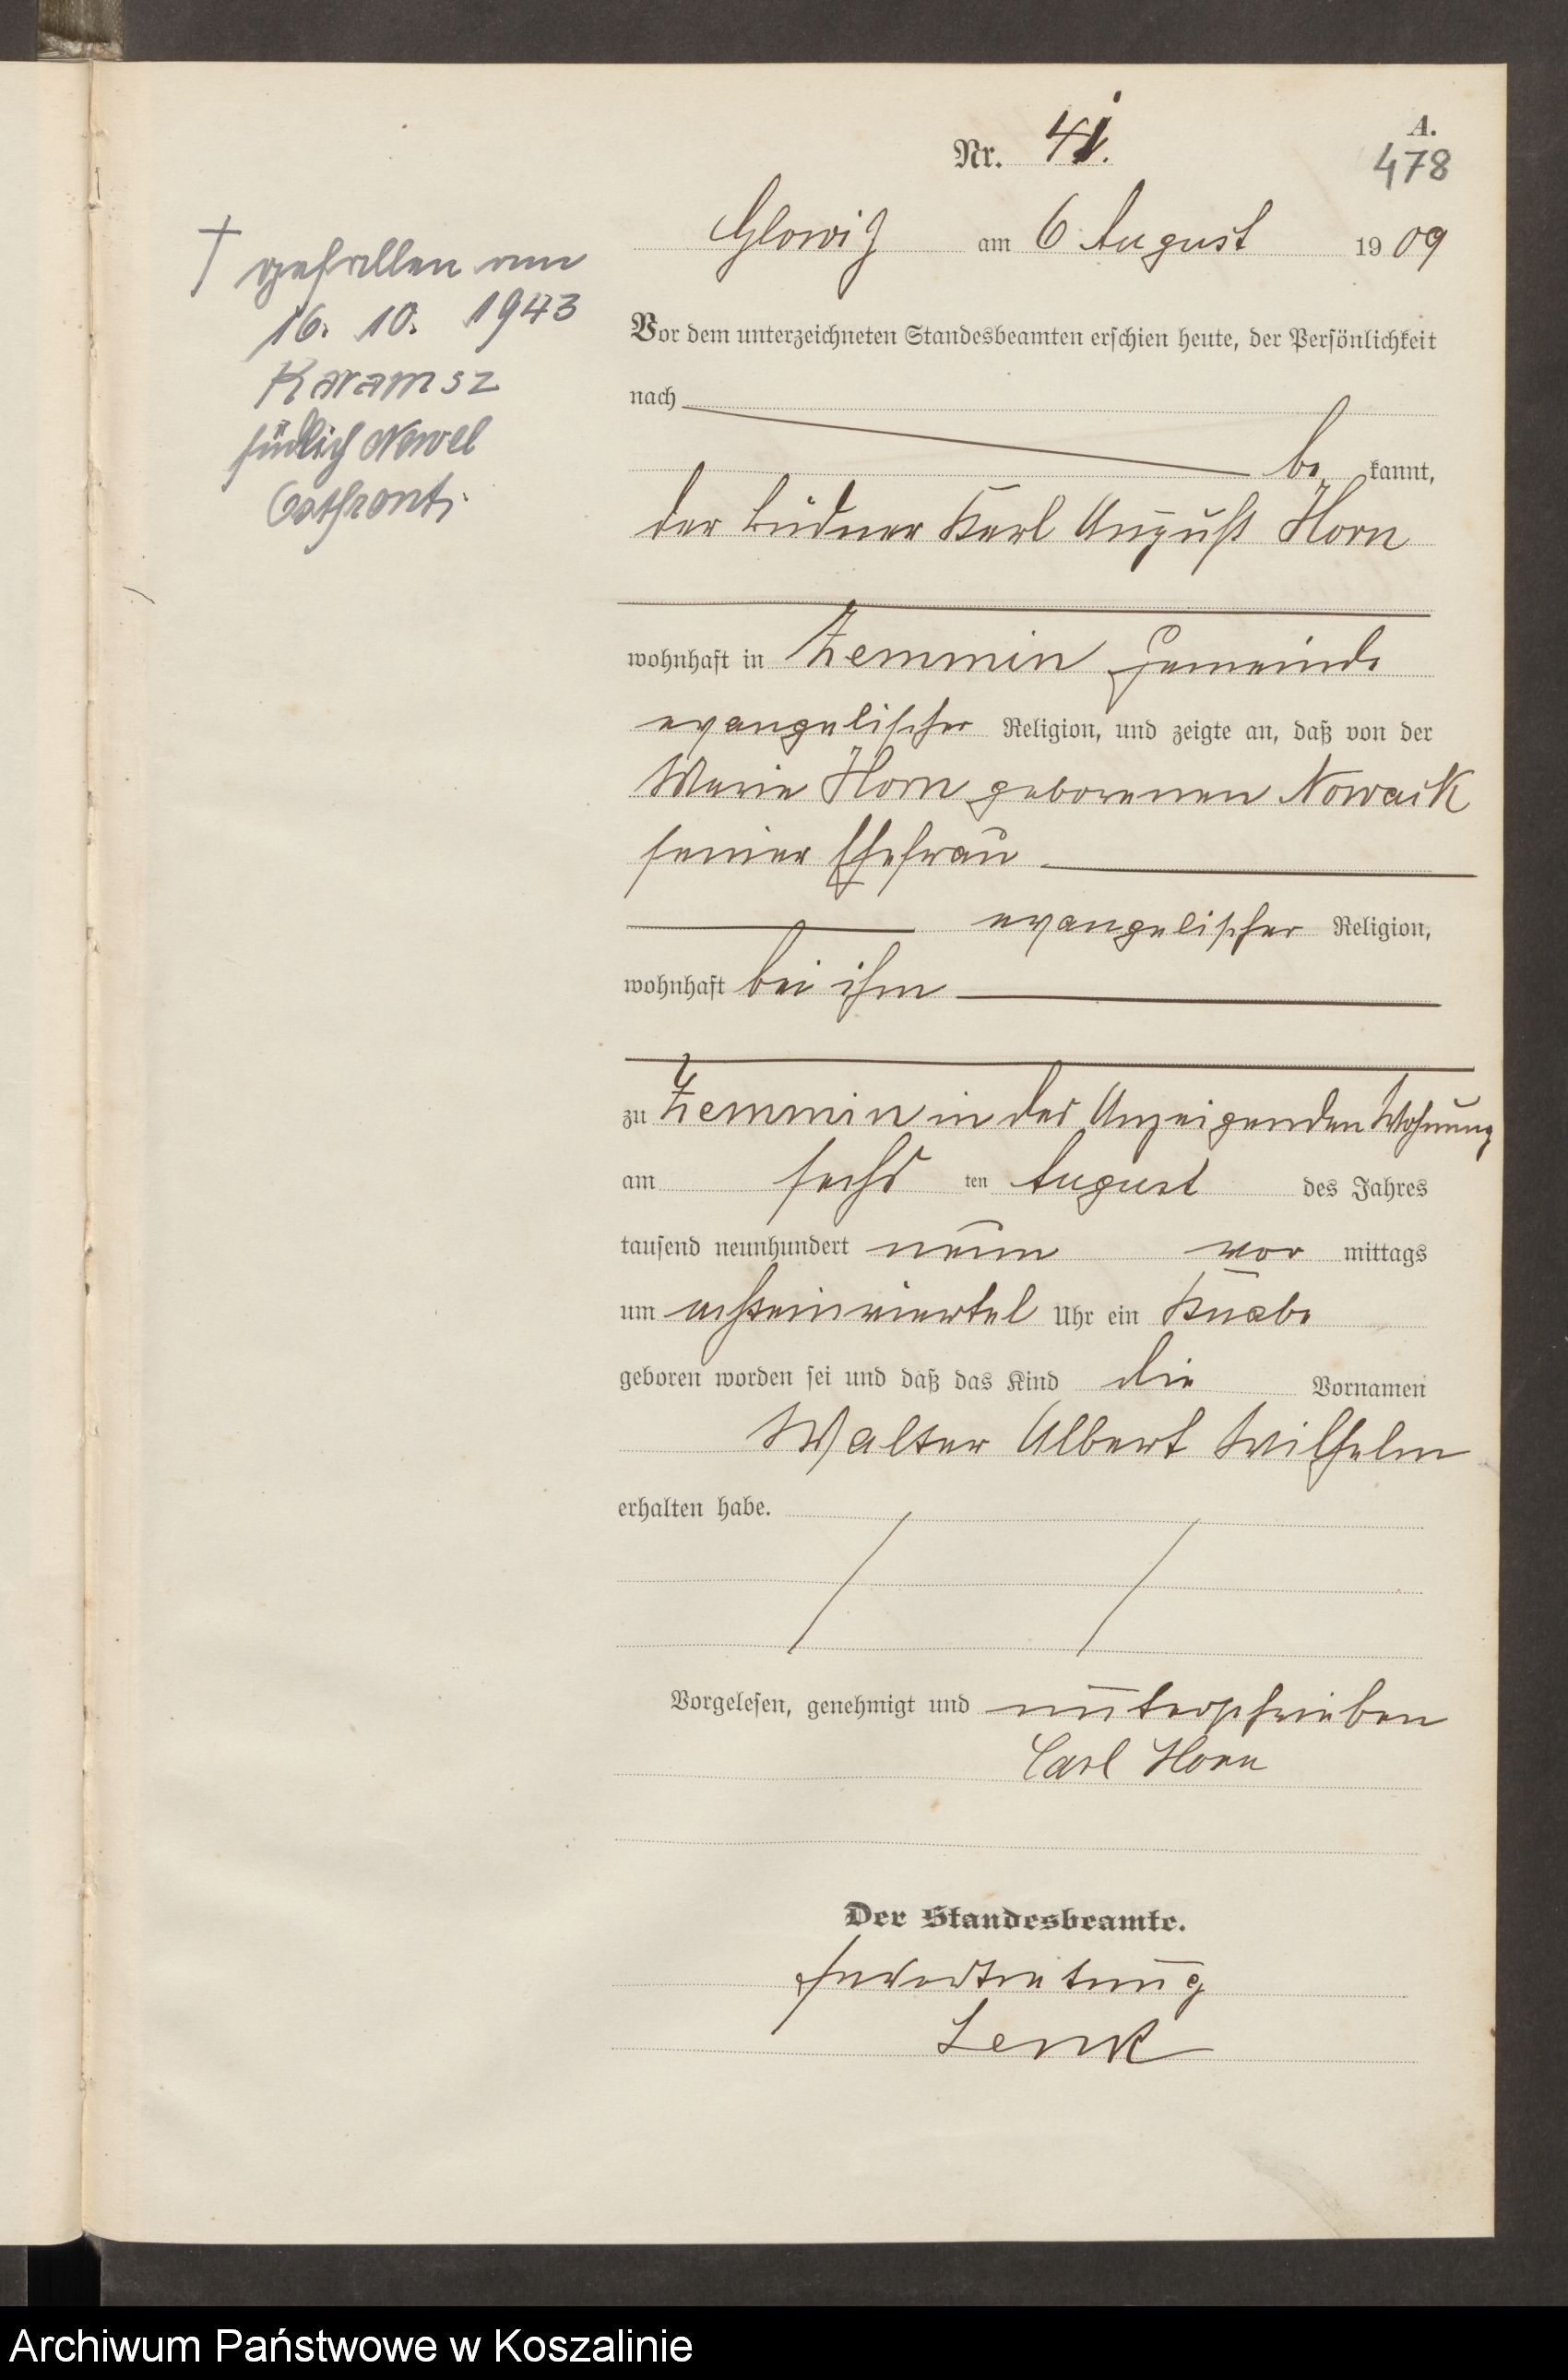 A.
Nr. 41.
478
Glowitz am 6 August 1909
† gefallen am
16. 10. 1943
Karamsz
südlich Newel
Ostfront.
Vor dem unterzeichneten Standesbeamten erschien heute, der Persönlichkeit
nach
be kannt,
der Büdner Karl August Horn
wohnhaft in Zemmin Gemeinde
evangelischer Religion, und zeigte an, daß von der
Marie Horn geborenen Nowack
seiner Ehefrau
evangelischer Religion,
wohnhaft bei ihm
zu Zemmin in des Anzeigenden Wohnung
am sechs ten August des Jahres
tausend neunhundert neun vor mittags
um achteinviertel Uhr ein Knabe
geboren worden sei und daß das Kind die Vornamen
Walter Albert Wilhelm
erhalten habe.
Vorgelesen, genehmigt und unterschrieben
Carl Horn
Der Standesbeamte.
In Vertretung
Lenk
Archiwum Państwowe w Koszalinie